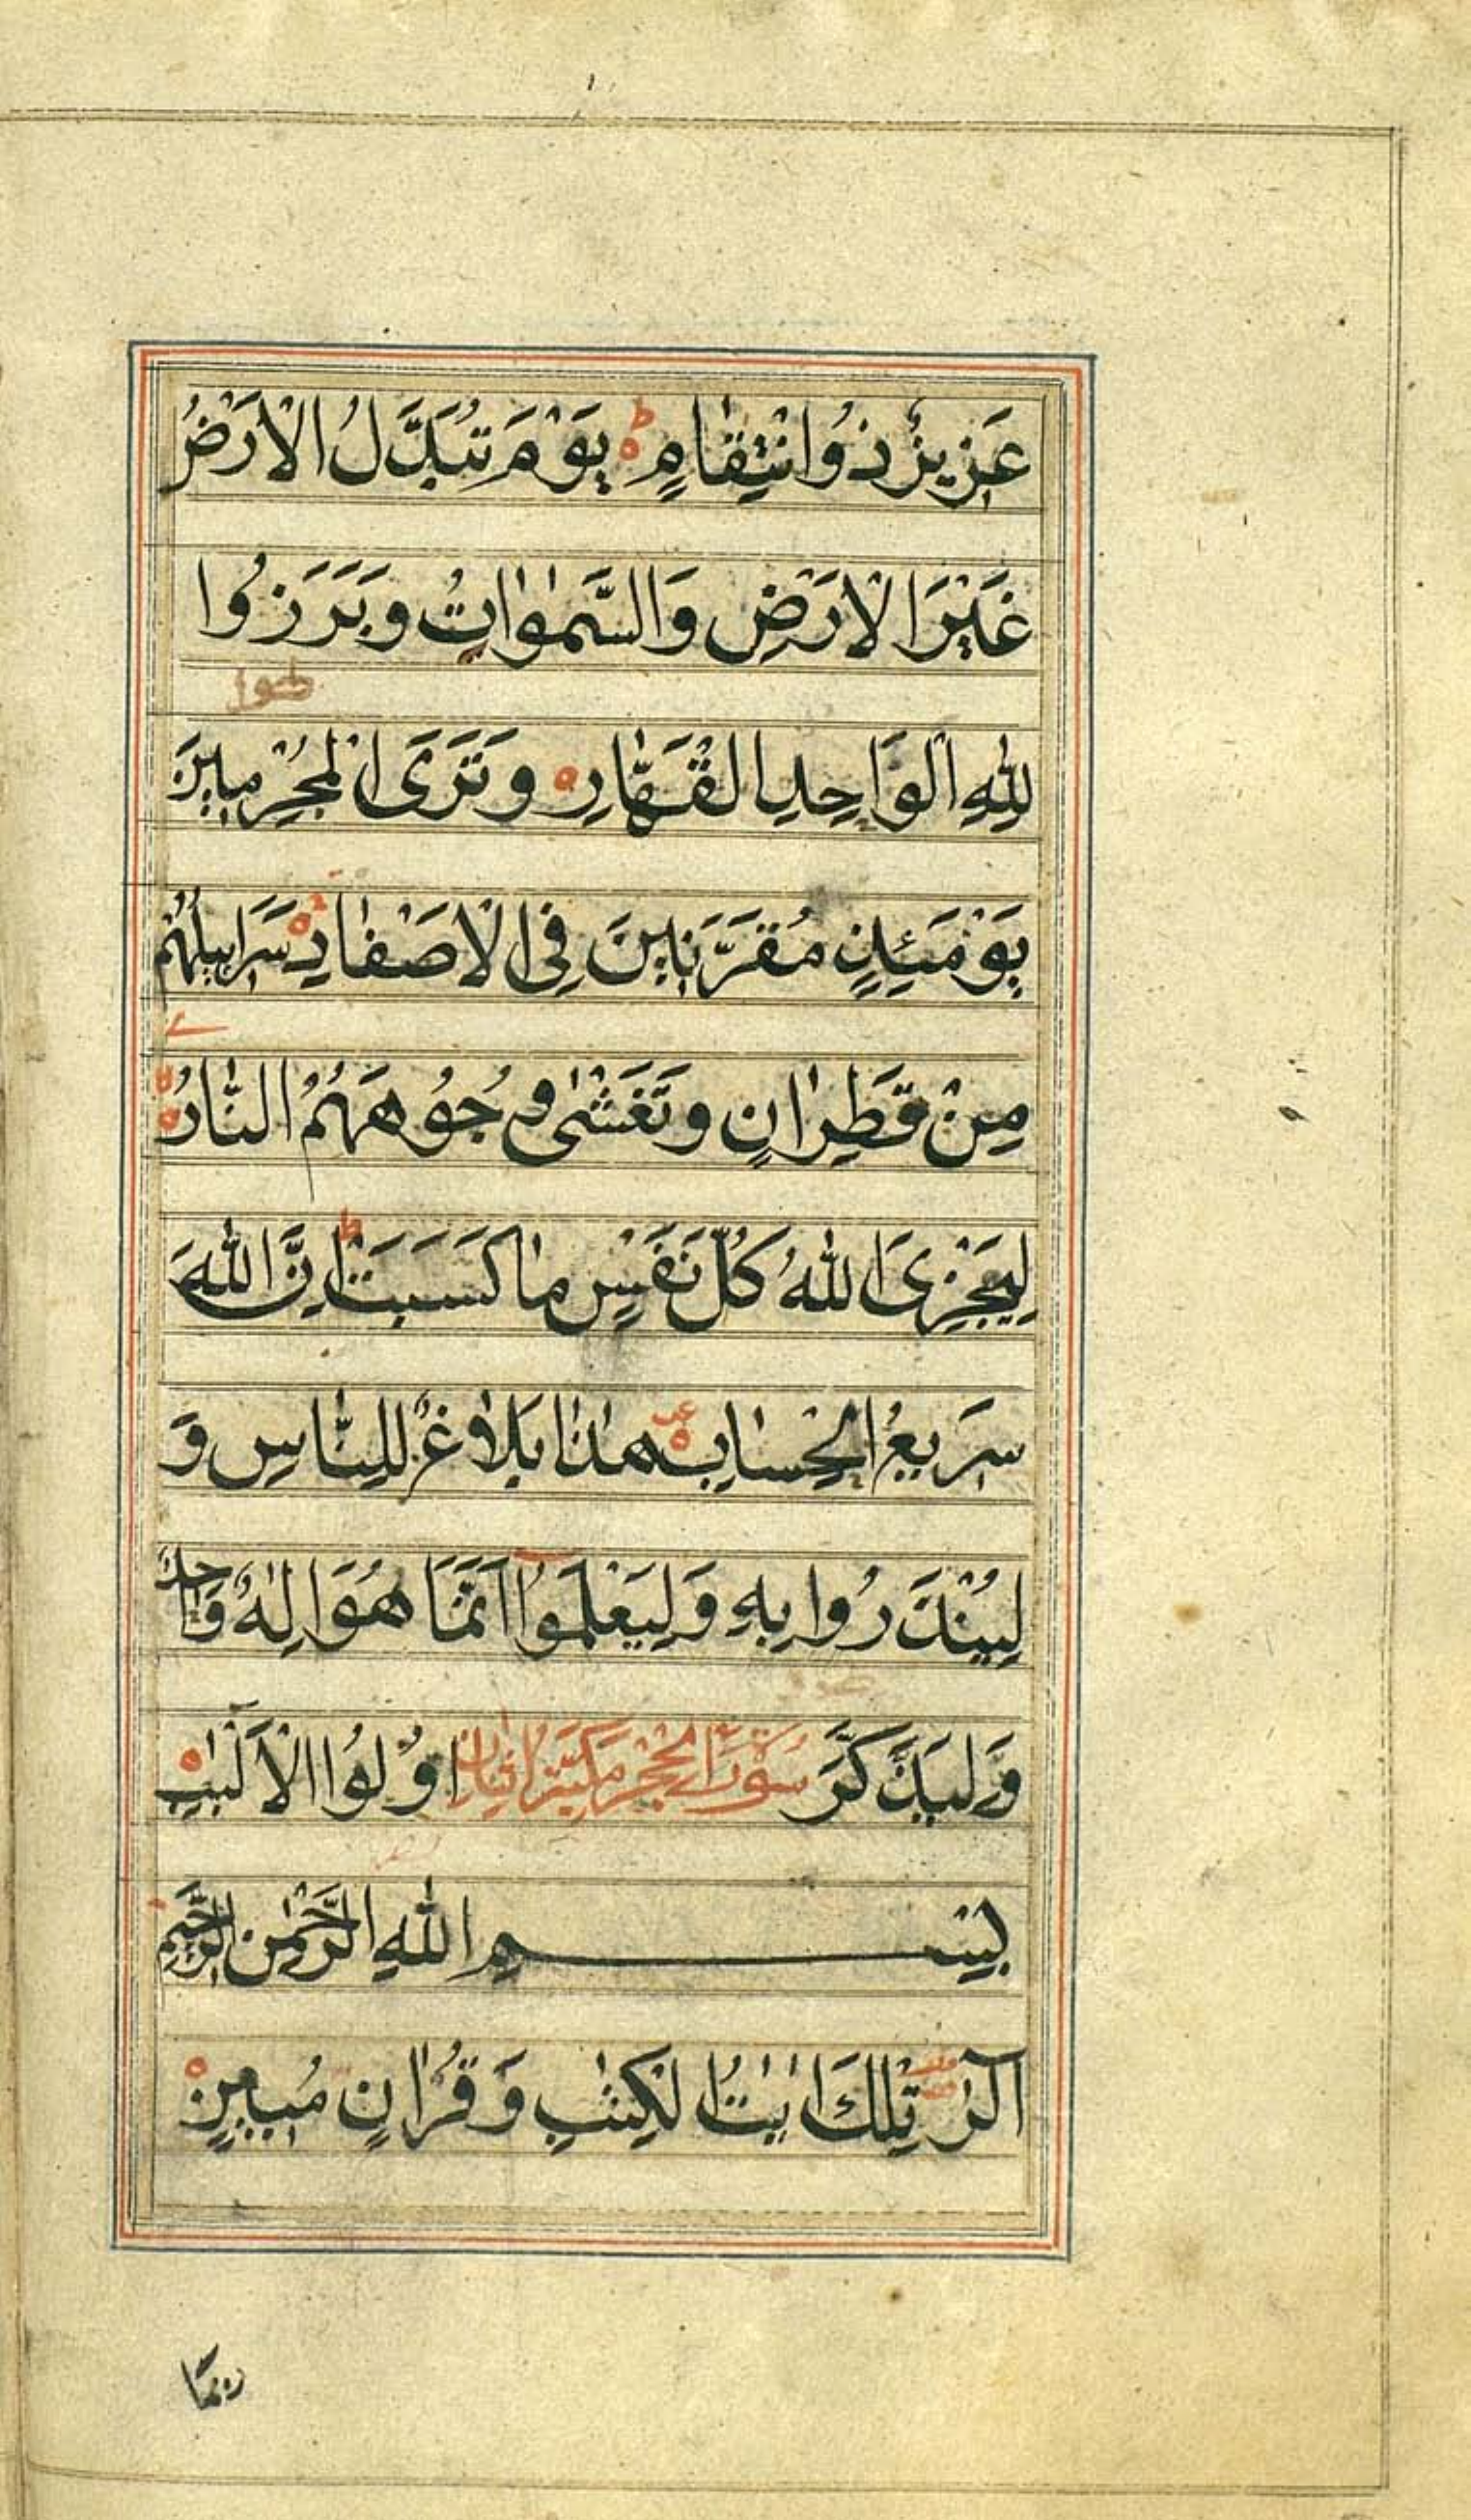 عَزِيزٌ ذُو انْتِقَامٍ ط يَوْمَ تُبَدَّلُ الْاَرْضُ
غَيْرَ الْاَرْضِ وَالسَّمٰوٰاتُ وَبَرَزُوا
لِلّٰهِ الْوَاحِدِ الْقَهَّارِ ه وَتَرَى الْمُجْرِمِينَ
يَوْمَئِذٍ مُقَرَّنِينَ فِي الْاَصْفَادِ ه سَرَابِيلُهُمْ
مِنْ قَطِرَانٍ وَتَغْشٰى وُجُوهَهُمُ النَّارُ ه
لِيَجْزِىَ اللّٰهُ كُلَّ نَفْسٍ مَا كَسَبَتْ ط اِنَّ اللّٰهَ
سَرِيعُ الْحِسَابِ ه هٰذَا بَلَاغٌ لِلنَّاسِ وَ
لِيُنْذَرُوا بِهِ وَلِيَعْلَمُوا اَنَّمَا هُوَ اِلٰهٌ وَاحِدٌ
وَلِيَذَّكَّرَ سُورَةُ الْحِجْرِ مَكِّيَّة اُولُوا الْاَلْبٰبِ ه
بِسْمِ اللّٰهِ الرَّحْمٰنِ الرَّحِيمِ
الٓرٰ تِلْكَ اٰيٰتُ الْكِتٰبِ وَقُرْاٰنٍ مُبِينٍ ه
رُبَمَا